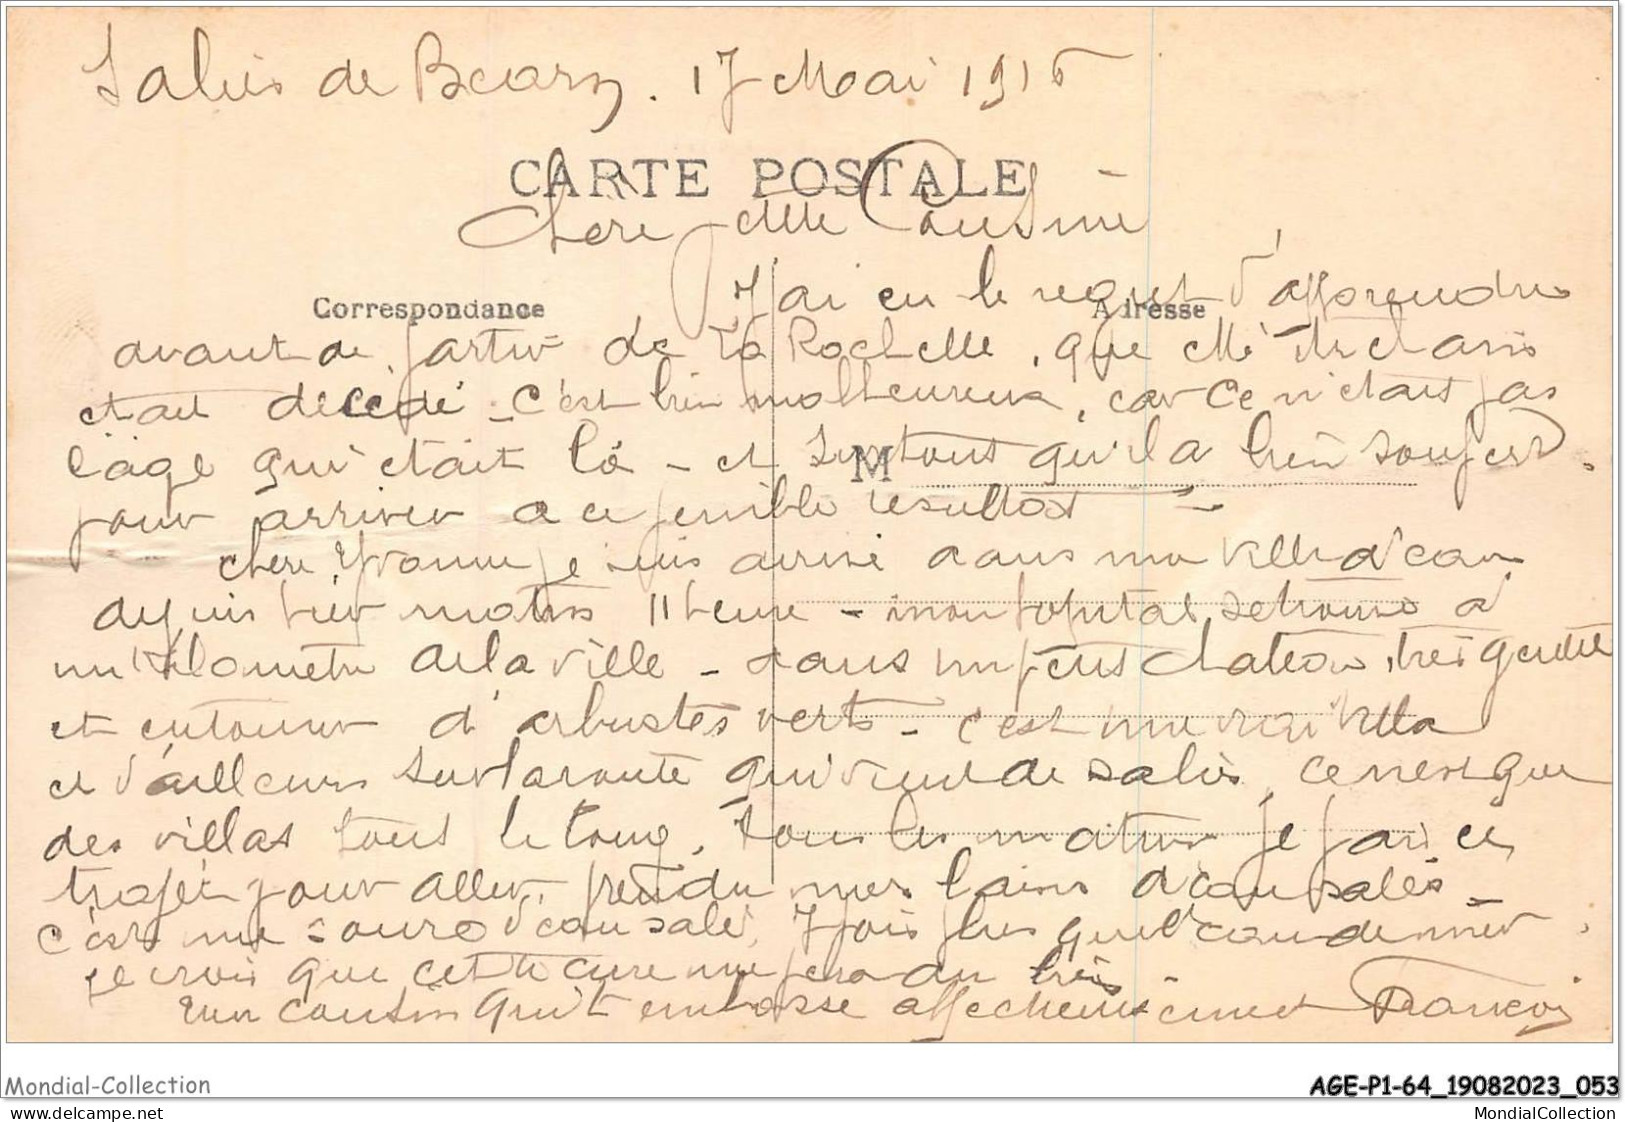 Salies de Bearn. 17 Mai 1915
CARTE POSTALE
Chère petite Cousine
Correspondance
Adresse
J'ai eu le regret d'apprendre
avant de partir de La Rochelle, que Mr
était décédé - c'est bien malheureux, car ce n'etait pas
l'age qui était là - et surtout qu'il a bien soufert.
M
pour arriver a ce penible resultat -
chere Yvonne je suis arrivé dans ma ville d'eau
depuis hier matin 11 heure - mon hopital se trouve a
un kilometre de la ville - dans un petit chateau, très gentil
et entourer d'arbustes verts - c'est une vrai villa
et d'ailleurs sur la route qui vient de Salies, ce n'est que
des villas tout le long. Tous les matins je fais ce
trajet pour aller prendre mes bains d'eau salés -
c'est une source d'eau salé, plus que l'eau de mer,
je crois que cette cure me fera du bien -
Ton cousin qui t'embrasse affectueusement François
Mondial-Collection
AGE-P1-64_19082023_053
MondialCollection.net
MondialCollection